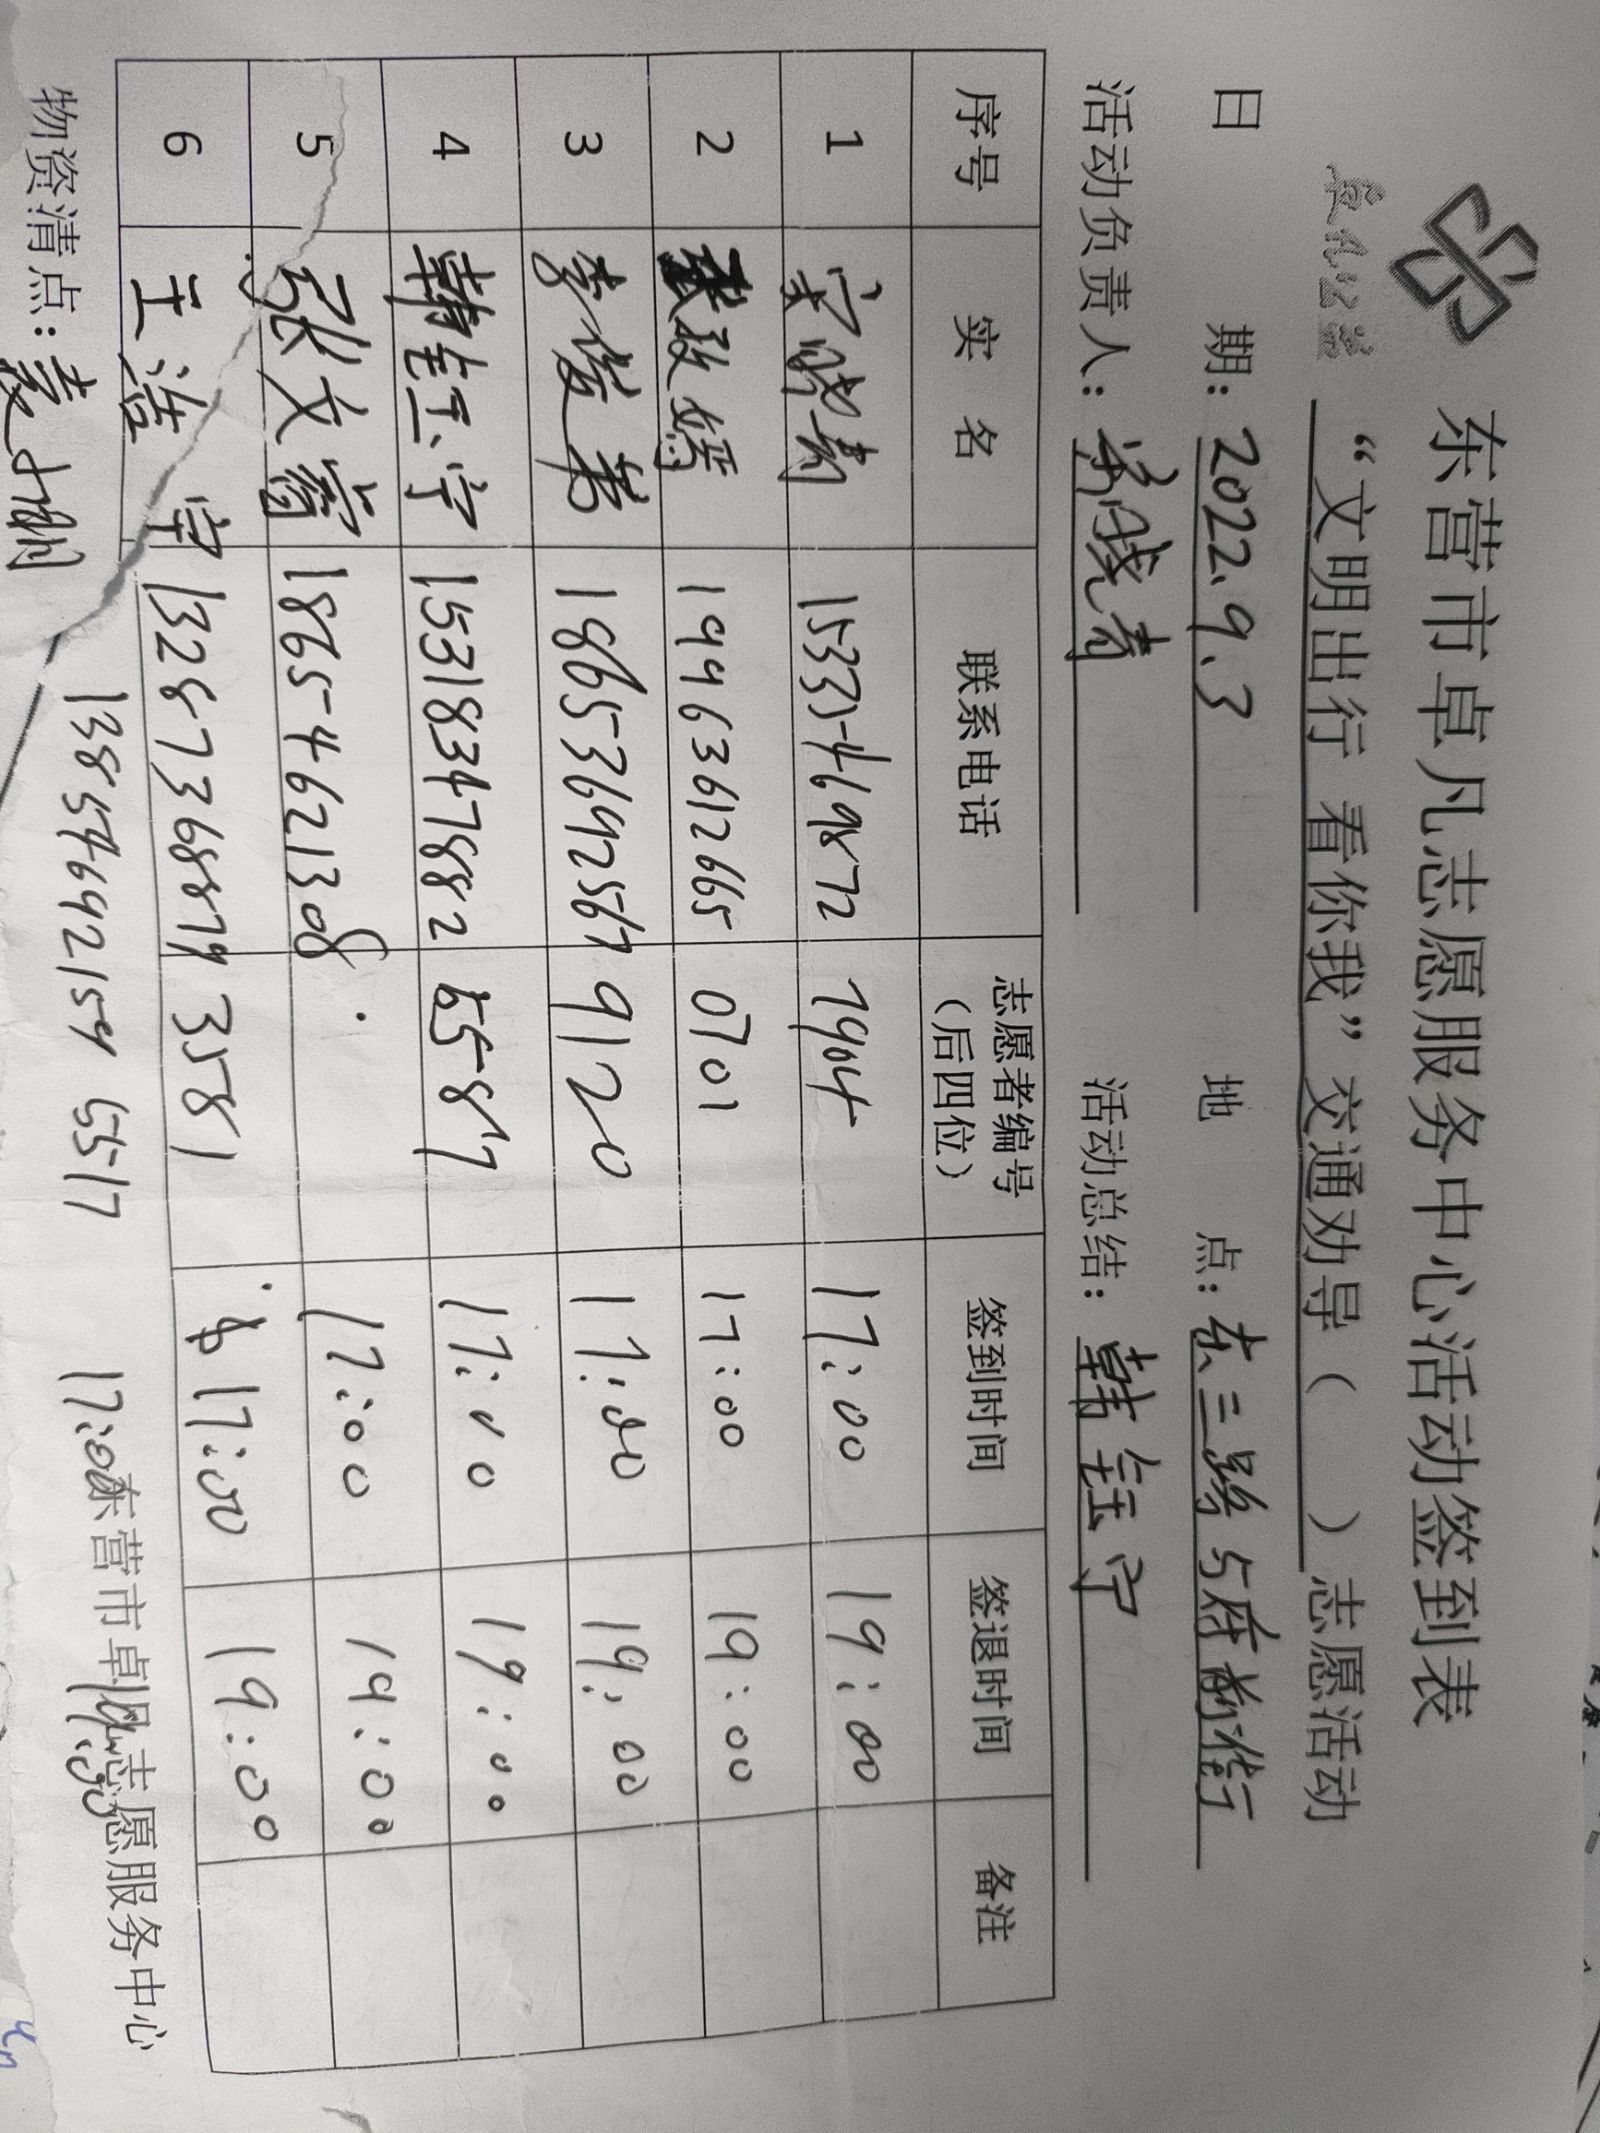 东营市卓凡志愿服务中心活动签到表
“文明出行 看你我”交通劝导（ ）志愿活动
日 期：2022.9.3 地 点：东三路与府前街
活动负责人： 活动总结：韩钰宁
序号 实 名 联系电话 志愿者编号（后四位） 签到时间 签退时间 备注
1 15335469872 7904 17:00 19:00
2 19963612665 0701 17:00 19:00
3 18653692567 9120 17:00 19:00
4 韩钰宁 15318347882 6587 17:10 19:00
5 张文 18654621308 17:00 19:00
6 王浩宇 13287368879 3581 17:00 19:00
物资清点： 东营市卓凡志愿服务中心
13854692154 5517 17:00 19:00